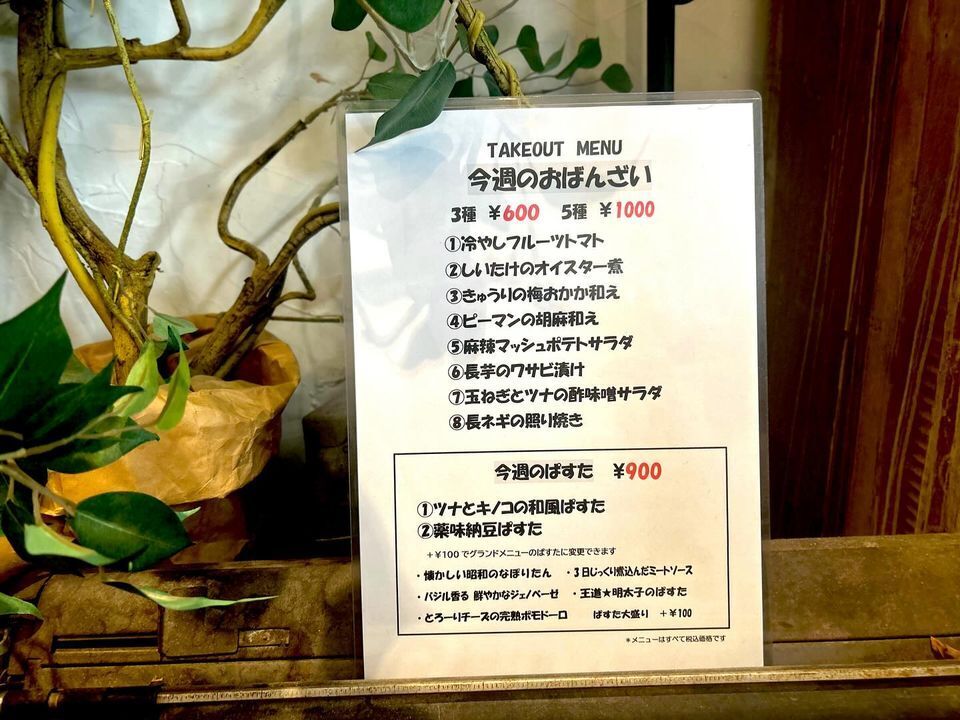 TAKEOUT MENU
今週のおばんざい
3種 ¥600 5種 ¥1000
①冷やしフルーツトマト
②しいたけのオイスター煮
③きゅうりの梅おかか和え
④ピーマンの胡麻和え
⑤麻辣マッシュポテトサラダ
⑥長芋のワサビ漬け
⑦玉ねぎとツナの酢味噌サラダ
⑧長ネギの照り焼き
今週のぱすた ¥900
①ツナとキノコの和風ぱすた
②薬味納豆ぱすた
+¥100でグランドメニューのぱすたに変更できます
・懐かしい昭和のなぽりたん ・3日じっくり煮込んだミートソース
・バジル香る 鮮やかなジェノベーゼ ・王道★明太子のぱすた
・とろーりチーズの完熟ポモドーロ ぱすた大盛り +¥100
*メニューはすべて税込価格です